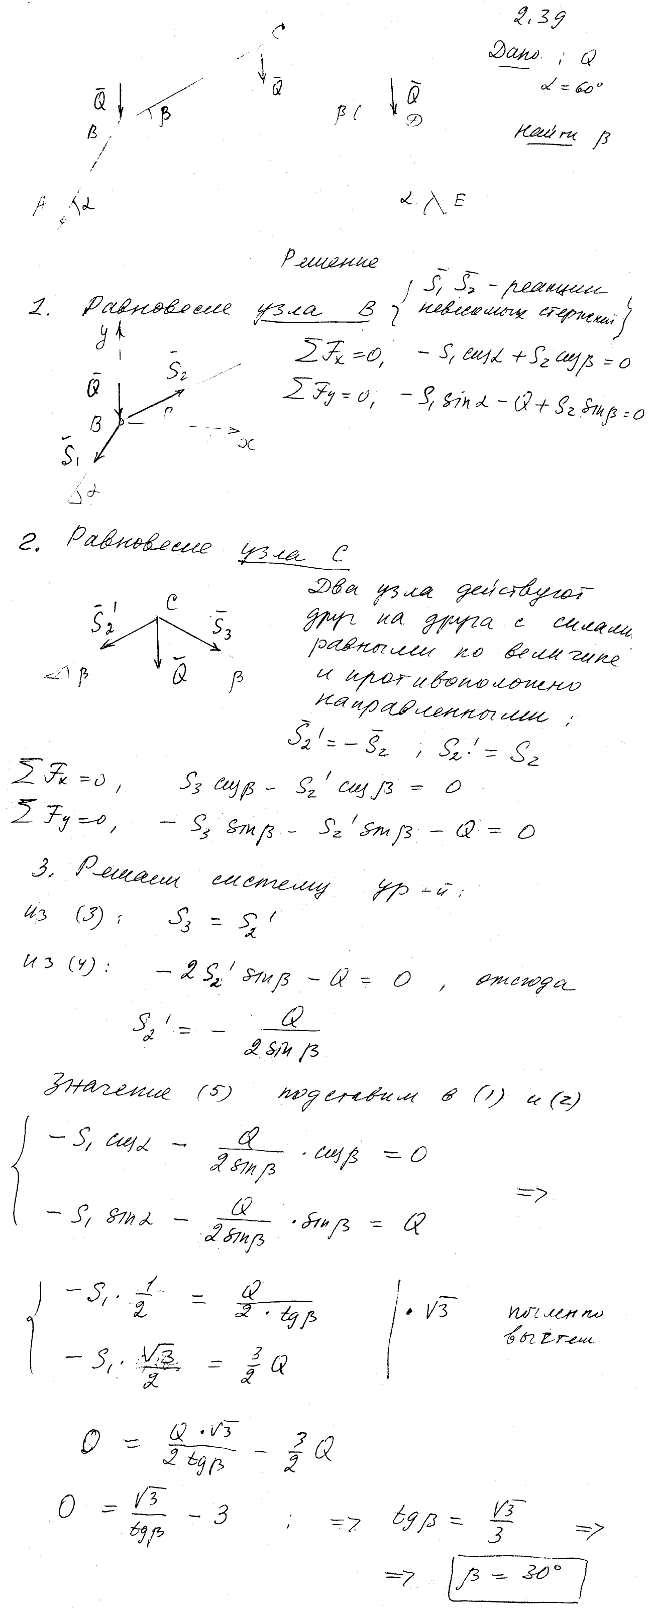 2.39
Дано: Q
α = 60°
Найти β
C
Q̄
Q̄
B
β
β
Q̄
D
A
α
α
E
Решение
1. Равновесие узла B { S̄₁ S̄₂ - реакции невесомых стержней }
ΣFx = 0, -S₁ cosα + S₂ cosβ = 0
ΣFy = 0, -S₁ sinα - Q + S₂ sinβ = 0
y
S̄₂
Q̄
B
x
S̄₁
α
2. Равновесие узла C
S̄₂'
C
S̄₃
β
Q̄
β
Два узла действуют
друг на друга с силами
равными по величине
и противоположно
направленными:
S̄₂' = -S̄₂ ; S₂' = S₂
ΣFx = 0, S₃ cosβ - S₂' cosβ = 0
ΣFy = 0, -S₃ sinβ - S₂' sinβ - Q = 0
3. Решаем систему ур-й:
из (3): S₃ = S₂'
из (4): -2S₂' sinβ - Q = 0, отсюда
S₂' = - Q / (2 sinβ)
Значение (5) подставим в (1) и (2)
{ -S₁ cosα - Q / (2 sinβ) · cosβ = 0
=>
-S₁ sinα - Q / (2 sinβ) · sinβ = Q
{ -S₁ · 1/2 = Q / (2 · tgβ) | · √3 почленно
вычтем
-S₁ · √3/2 = 3/2 Q
0 = Q · √3 / (2 tgβ) - 3/2 Q
0 = √3 / tgβ - 3 ; => tgβ = √3/3 =>
=> β = 30°